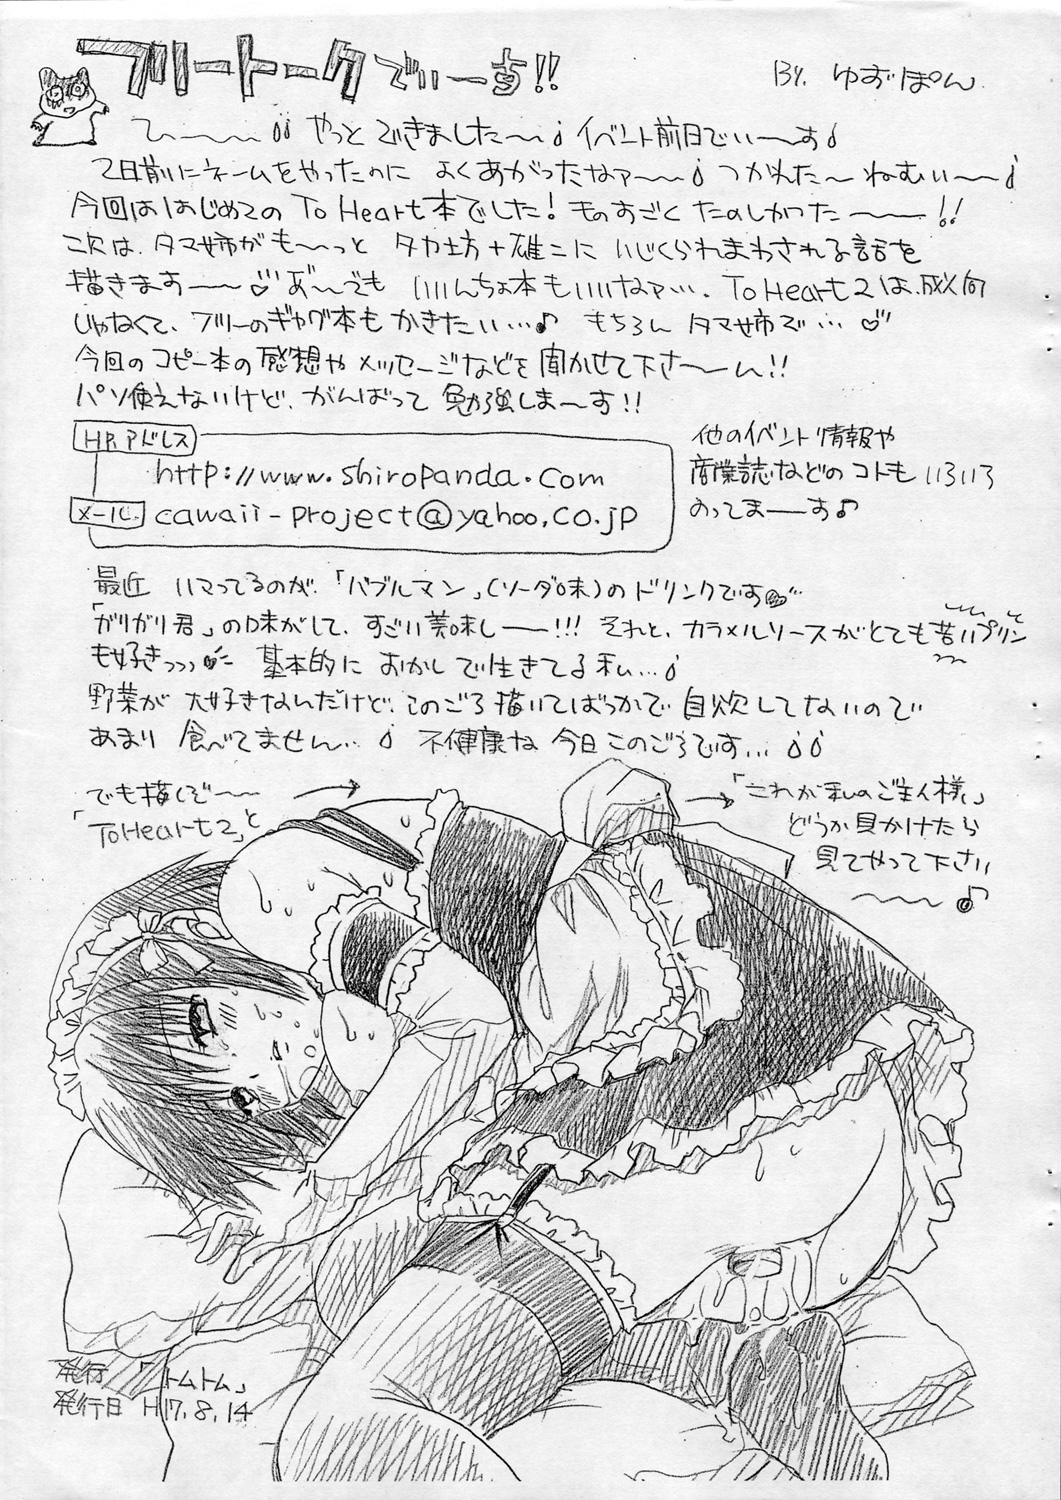 フリートークでぃーす!!
BY. ゆずぽん
ひ〜〜〜 やっとできました〜 イベント前日でぃーす
2日前にネームをやったのに よくあがったなァ〜〜 つかれた〜 ねむい〜〜
今回ははじめてのTo Heart本でした! ものすごくたのしかった〜〜!!
次は、タマ姉がも〜っと タカ坊+雄二に いじくられまわされる話を
描きます〜〜♡ あ゛〜でも いいんちょ本もいいなァ…. To Heart2は、成人向
じゃなくて、フリーのギャグ本もかきたい…♪ もちろん タマ姉で…♡
今回のコピー本の感想やメッセージなどを聞かせて下さ〜〜ん!!
パソ使えないけど、がんばって 勉強しま〜す!!
HP.アドレス
http://www.shiropanda.com
メール. cawaii-project@yahoo.co.jp
他のイベント情報や
商業誌などのコトもいろいろ
のってま〜〜す♪
最近 ハマってるのが、「バブルマン」(ソーダ味)のドリンクです
「ガリガリ君」の味がして、すごい美味し〜〜!!! それと、カラメルソースがとても苦いプリン
も好きっっっ 基本的に おかしで生きてる私…
野菜が 大好きなんだけど、このごろ描いてばっかで 自炊してないので
あまり 食べてません… 不健康な 今日このごろです…
でも描くぞ〜〜
「To Heart2」と
「これが私のご主人様」
どうか見かけたら
見てやって下さい
〜〜〜♪
発行 「トムトム」
発行日 H17.8.14